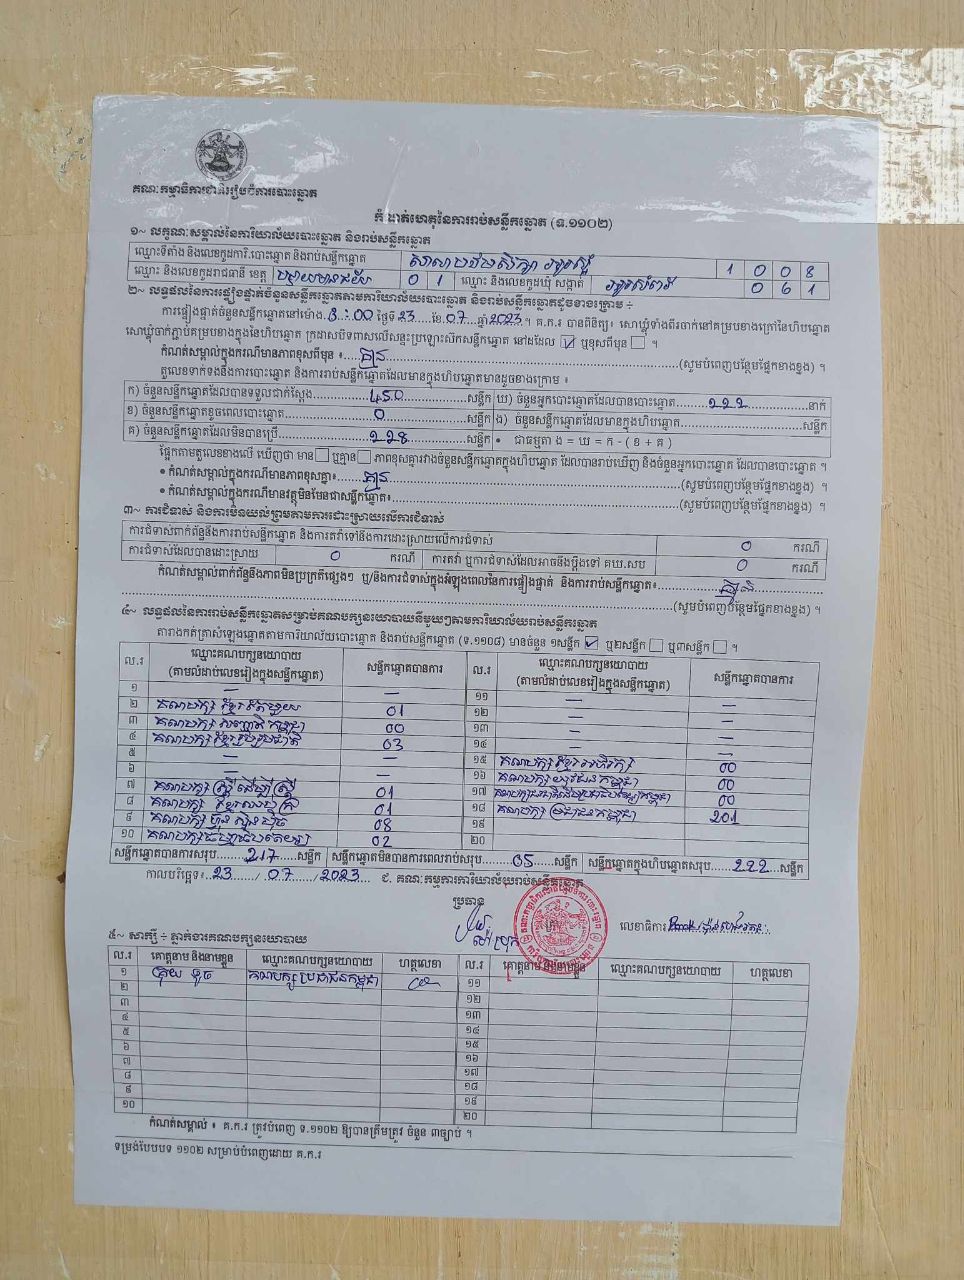 គណៈកម្មាធិការជាតិរៀបចំការបោះឆ្នោត
កំណត់ហេតុនៃការរាប់សន្លឹកឆ្នោត (ទ.១១០២)
១~ លក្ខណៈសម្គាល់នៃការិយាល័យបោះឆ្នោត និងរាប់សន្លឹកឆ្នោត
ឈ្មោះទីតាំង និងលេខកូដការិ.បោះឆ្នោត និងរាប់សន្លឹកឆ្នោត សាលាបឋមសិក្សា 1 0 0 8
ឈ្មោះ និងលេខកូដរាជធានី ខេត្ត បន្ទាយមានជ័យ 0 1 ឈ្មោះ និងលេខកូដឃុំ សង្កាត់ 0 6 1
២~ លទ្ធផលនៃការផ្ទៀងផ្ទាត់ចំនួនសន្លឹកឆ្នោតតាមការិយាល័យបោះឆ្នោត និងរាប់សន្លឹកឆ្នោតដូចខាងក្រោម ÷
ការផ្ទៀងផ្ទាត់ចំនួនសន្លឹកឆ្នោតនៅម៉ោង 3:00 ថ្ងៃទី 23 ខែ 07 ឆ្នាំ 2023 ។ គ.ក.រ បានពិនិត្យ៖ សោឃ្លុំទាំងពីរចាក់នៅគម្របខាងក្រៅនៃហិបឆ្នោត
សោឃ្លុំចាក់ភ្ជាប់គម្របខាងក្នុងនៃហិបឆ្នោត ក្រដាសបិទពាសលើសន្ទះប្រឡោះស៊កសន្លឹកឆ្នោត នៅដដែល ☑ ឬខុសពីមុន ☐ ។
កំណត់សម្គាល់ក្នុងករណីមានភាពខុសពីមុន ៖ គ្មាន (សូមបំពេញបន្ថែមផ្នែកខាងខ្នង) ។
តួលេខទាក់ទងនឹងការបោះឆ្នោត និងការរាប់សន្លឹកឆ្នោតដែលមានក្នុងហិបឆ្នោតមានដូចខាងក្រោម ៖
ក) ចំនួនសន្លឹកឆ្នោតដែលបានទទួលជាក់ស្តែង 450 សន្លឹក ឃ) ចំនួនអ្នកបោះឆ្នោតដែលបានបោះឆ្នោត 222 នាក់
ខ) ចំនួនសន្លឹកឆ្នោតខូចពេលបោះឆ្នោត 0 សន្លឹក ង) ចំនួនសន្លឹកឆ្នោតដែលមានក្នុងហិបឆ្នោត សន្លឹក
គ) ចំនួនសន្លឹកឆ្នោតដែលមិនបានប្រើ 228 សន្លឹក • ជាធម្មតា ង = ឃ = ក - ( ខ + គ )
ផ្អែកតាមតួលេខខាងលើ ឃើញថា មាន ☐ ឬគ្មាន ☐ ភាពខុសគ្នារវាងចំនួនសន្លឹកឆ្នោតក្នុងហិបឆ្នោត ដែលបានរាប់ឃើញ និងចំនួនអ្នកបោះឆ្នោត ដែលបានបោះឆ្នោត ។
• កំណត់សម្គាល់ក្នុងករណីមានភាពខុសគ្នា៖ គ្មាន (សូមបំពេញបន្ថែមផ្នែកខាងខ្នង) ។
• កំណត់សម្គាល់ក្នុងករណីមានវត្ថុមិនមែនជាសន្លឹកឆ្នោត៖ (សូមបំពេញបន្ថែមផ្នែកខាងខ្នង) ។
៣~ ការជំទាស់ និងការមិនយល់ព្រមតាមការដោះស្រាយលើការជំទាស់
ការជំទាស់ពាក់ព័ន្ធនឹងការរាប់សន្លឹកឆ្នោត និងការតវ៉ាទៅនឹងការដោះស្រាយលើការជំទាស់ 0 ករណី
ការជំទាស់ដែលបានដោះស្រាយ 0 ករណី ការតវ៉ា ឬការជំទាស់ដែលអាចនឹងប្តឹងទៅ គឃ.សប 0 ករណី
កំណត់សម្គាល់ពាក់ព័ន្ធនឹងភាពមិនប្រក្រតីផ្សេងៗ ឬ/និងការជំទាស់ក្នុងអំឡុងពេលនៃការផ្ទៀងផ្ទាត់ និងការរាប់សន្លឹកឆ្នោត៖ គ្មាន
(សូមបំពេញបន្ថែមផ្នែកខាងខ្នង) ។
៤~ លទ្ធផលនៃការរាប់សន្លឹកឆ្នោតសម្រាប់គណបក្សនយោបាយនីមួយៗតាមការិយាល័យរាប់សន្លឹកឆ្នោត
តារាងកត់ត្រាសំឡេងឆ្នោតតាមការិយាល័យបោះឆ្នោត និងរាប់សន្លឹកឆ្នោត (ទ.១១០៨) មានចំនួន ១សន្លឹក ☑ ឬ២សន្លឹក ☐ ឬ៣សន្លឹក ☐ ។
ល.រ ឈ្មោះគណបក្សនយោបាយ (តាមលំដាប់លេខរៀងក្នុងសន្លឹកឆ្នោត) សន្លឹកឆ្នោតបានការ ល.រ ឈ្មោះគណបក្សនយោបាយ (តាមលំដាប់លេខរៀងក្នុងសន្លឹកឆ្នោត) សន្លឹកឆ្នោតបានការ
១ — — ១១ — —
២ គណបក្ស ខ្មែរ តែមួយ 01 ១២ — —
៣ គណបក្ស សញ្ជាតិ កម្ពុជា 00 ១៣ — —
៤ គណបក្ស ខ្មែរ រួបរួមជាតិ 03 ១៤ — —
៥ — — ១៥ គណបក្ស ខ្មែរ អភិរក្ស 00
៦ — — ១៦ គណបក្ស យុវជន កម្ពុជា 00
៧ គណបក្ស ស្ត្រី ដើម្បី ស្ត្រី 01 ១៧ 00
៨ គណបក្ស ខ្មែរ ឈប់ ក្រ 01 ១៨ គណបក្ស ប្រជាជន កម្ពុជា 201
៩ គណបក្ស ហ្វ៊ុន ស៊ិន ប៉ិច 08 ១៩
១០ គណបក្ស ធម្មាធិបតេយ្យ 02 ២០
សន្លឹកឆ្នោតបានការសរុប 217 សន្លឹក សន្លឹកឆ្នោតមិនបានការពេលរាប់សរុប 05 សន្លឹក សន្លឹកឆ្នោតក្នុងហិបឆ្នោតសរុប 222 សន្លឹក
កាលបរិច្ឆេទ៖ 23 / 07 / 2023 ៩. គណៈកម្មការការិយាល័យរាប់សន្លឹកឆ្នោត
ប្រធាន លេខាធិការ
៥~ សាក្សី ÷ ភ្នាក់ងារគណបក្សនយោបាយ
ល.រ គោត្តនាម និងនាមខ្លួន ឈ្មោះគណបក្សនយោបាយ ហត្ថលេខា ល.រ គោត្តនាម និងនាមខ្លួន ឈ្មោះគណបក្សនយោបាយ ហត្ថលេខា
១ គណបក្ស ប្រជាជនកម្ពុជា ១១
២ ១២
៣ ១៣
៤ ១៤
៥ ១៥
៦ ១៦
៧ ១៧
៨ ១៨
៩ ១៩
១០ ២០
កំណត់សម្គាល់ ៖ គ.ក.រ ត្រូវបំពេញ ទ.១១០២ ឱ្យបានត្រឹមត្រូវ ចំនួន ៣ច្បាប់ ។
ទម្រង់បែបបទ ១១០២ សម្រាប់បំពេញដោយ គ.ក.រ